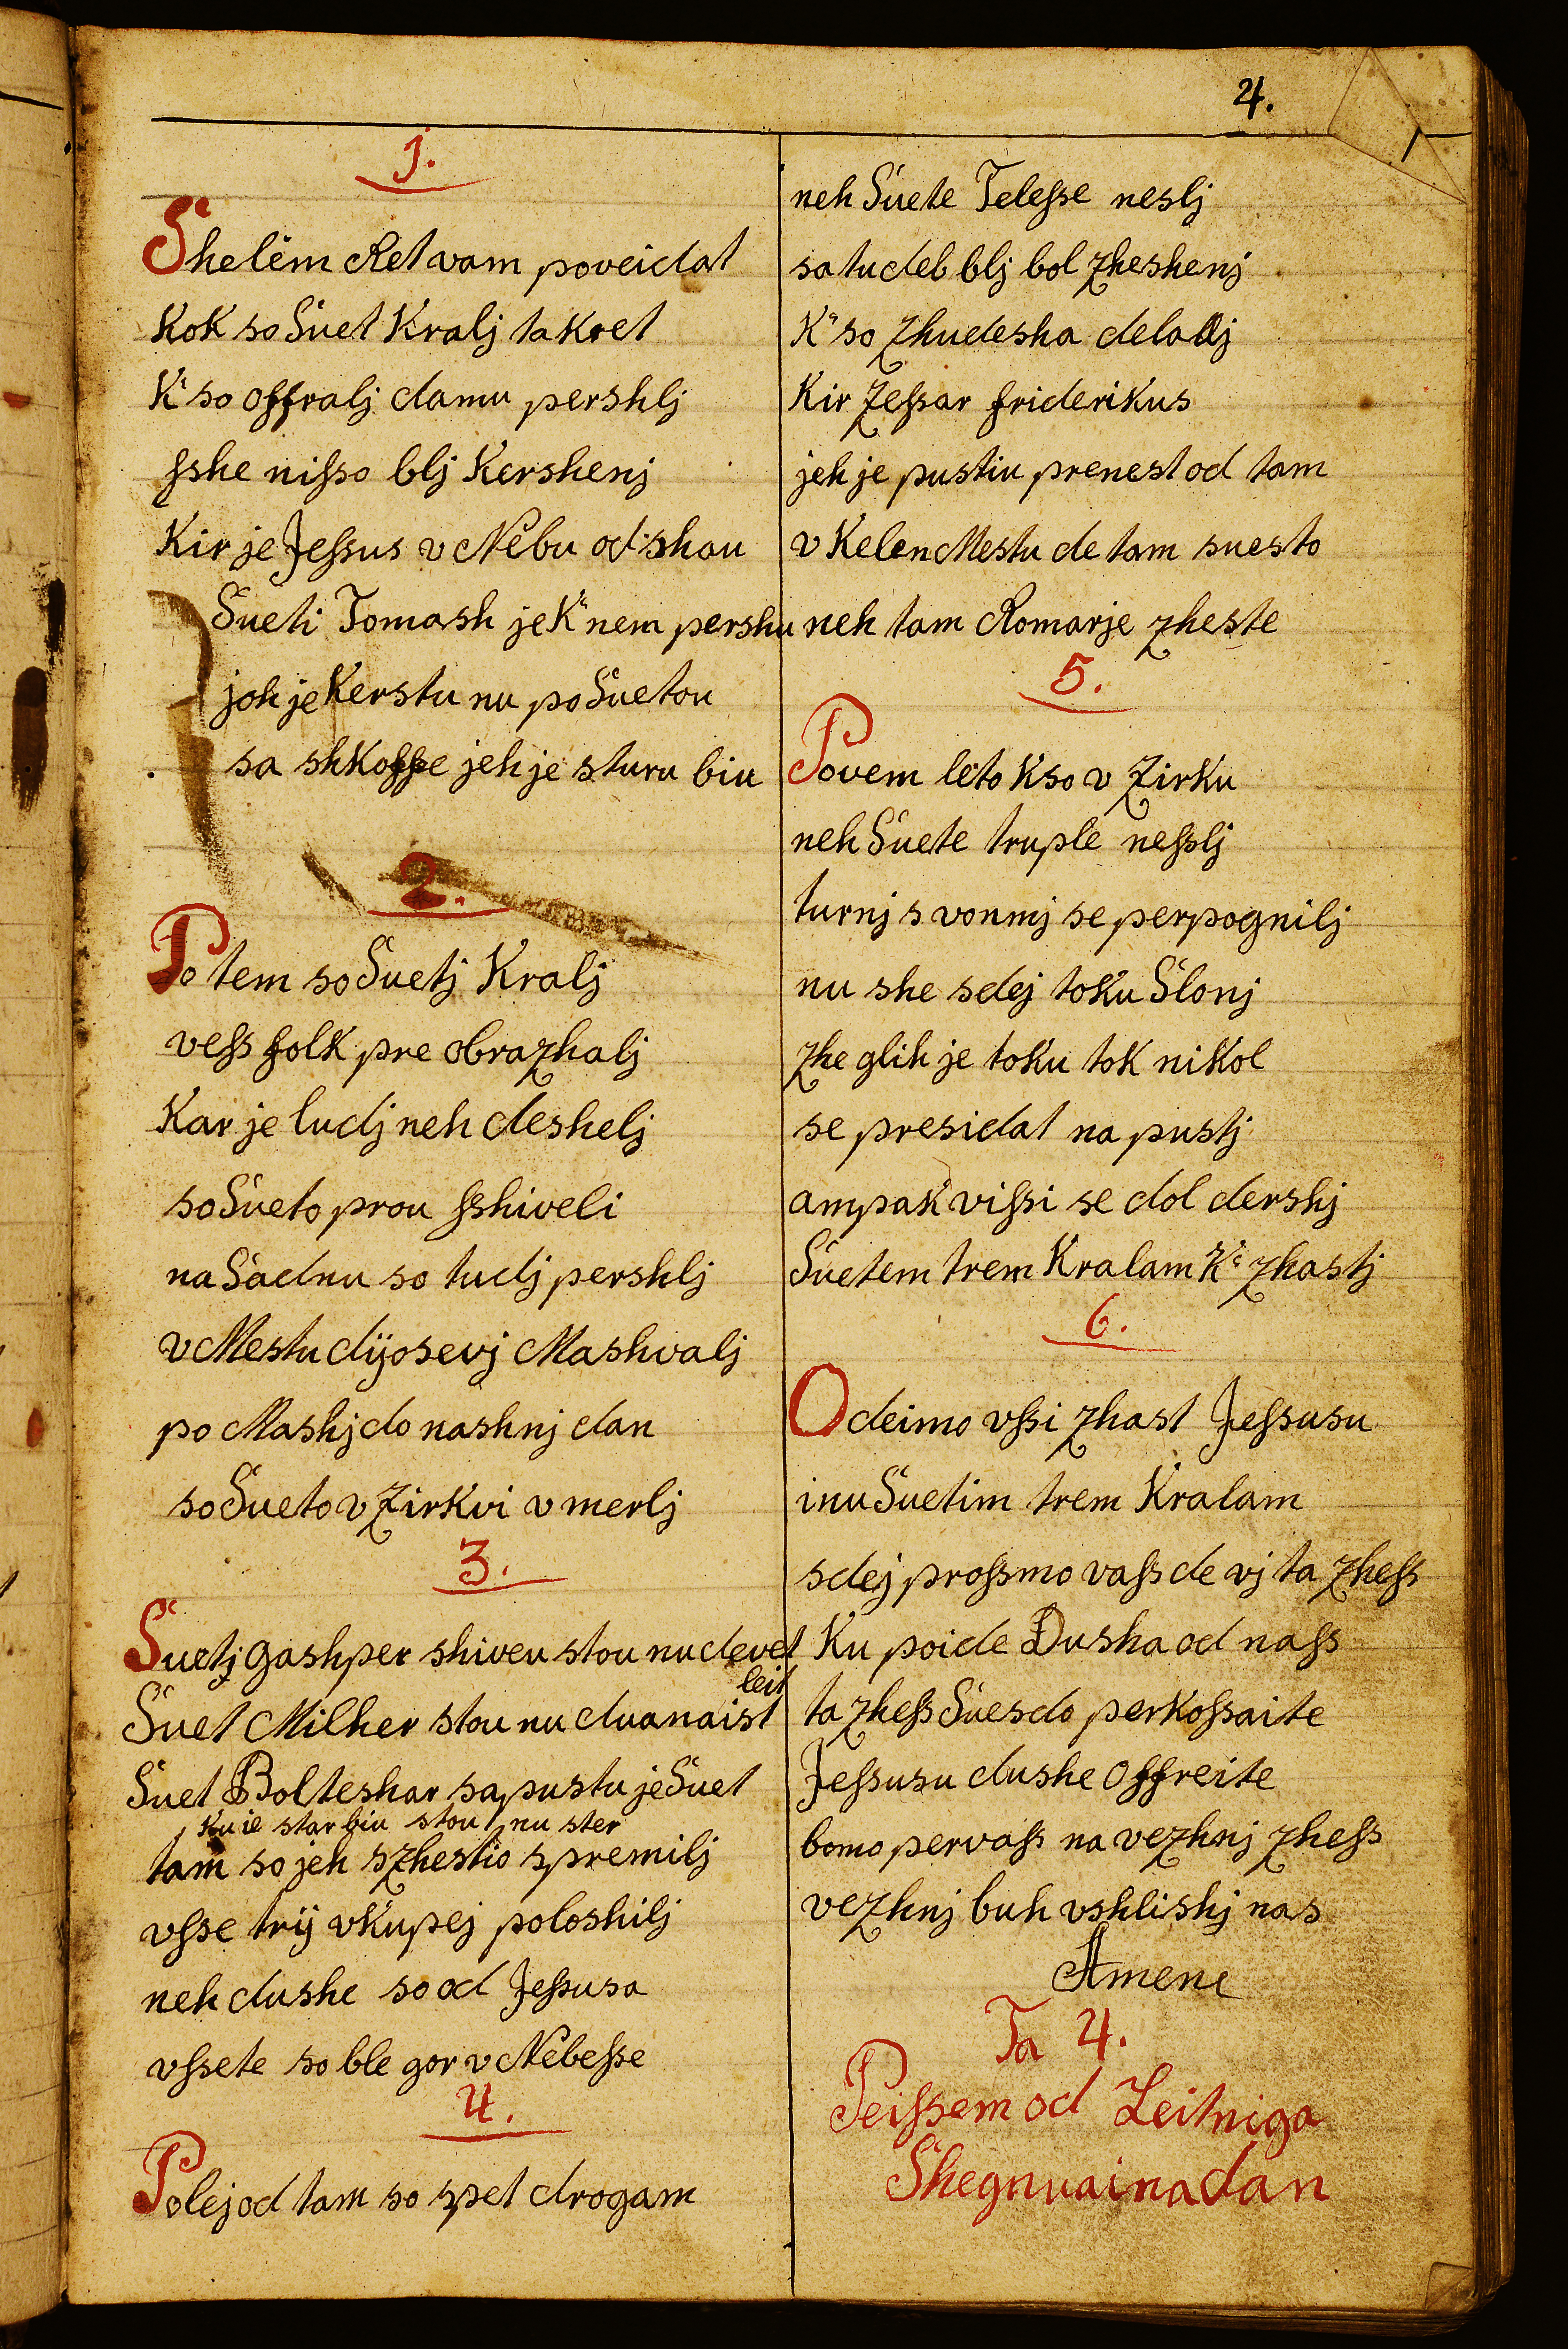 4.
1.
Shelèm Ret vam poveidat
Kok so Suet Kralj takret
K so offralj damu pershlj
sshe nisso blj Kershenj
Kir je Jessus v Nèbu od shau
Sueti Tomash je K nem pershu
joh je Kerstu nu po Suetou
sa shkoffe jeh je sturu biu
2.
Po tem so Suetj Kralj
vess folk pre obrazhalj
Kar je ludj neh deshelj
so Sueto prou sshiveli
na Sadnu so tudj pershlj
v Mestu dijosevj Mashvalj
po Mashj do nashnj dan
so Sueto v Zirkvi v merlj
3.
Suetj Gashper shiveu stou nu devet
leit
Suet Milher stou nu duanaist
Suet Bolteshar sapustu je Suet
Ku je star biu stou nu ster
tam so jeh szhestio spremilj
vsse trij vkupej poloshilj
neh dushe so od Jessusa
vssete so ble gor v Nèbesse
4.
Polej od tam so spet drogam
neh Suete Telesse neslj
sa tu deb blj bol zheshenj
K so zhudesha deladj
Kir Zessar friderikus
jeh je pustiu prenest od tam
v Kelen Mestu de tam suesto
neh tam Romarje zheste
5.
Povem leto K so v Zirku
neh Suete truple nesslj
turnj s vonmj se perpognilj
nu she sdej toku Slonj
zhe glih je toku tok nikol
se presidat na pustj
ampak vissi se dol dershj
Suetem trem Kralam K zhastj
6.
Odeimo vssi zhast Jessusu
inu Suetim trem Kralam
sdej prossmo vass de vj ta zhess
Ku poide Dusha od nass
ta zhess Suesdo perkossaite
Jessusu dushe offreite
bomo per vass na vezhnj zhess
vezhnj buh vshlishj nas
Amene
Ta 4.
Peissem od Leitniga
Shegnuaina dan